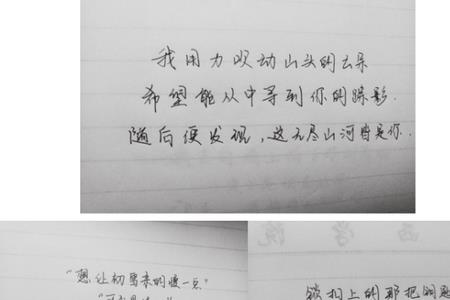 我用力吹动山头的云朵
希望能从中寻到你的踪影.
随后便发现,这无尽山河皆是你.
"想让初雪来的慢一点"
锁扣上的那把钥匙